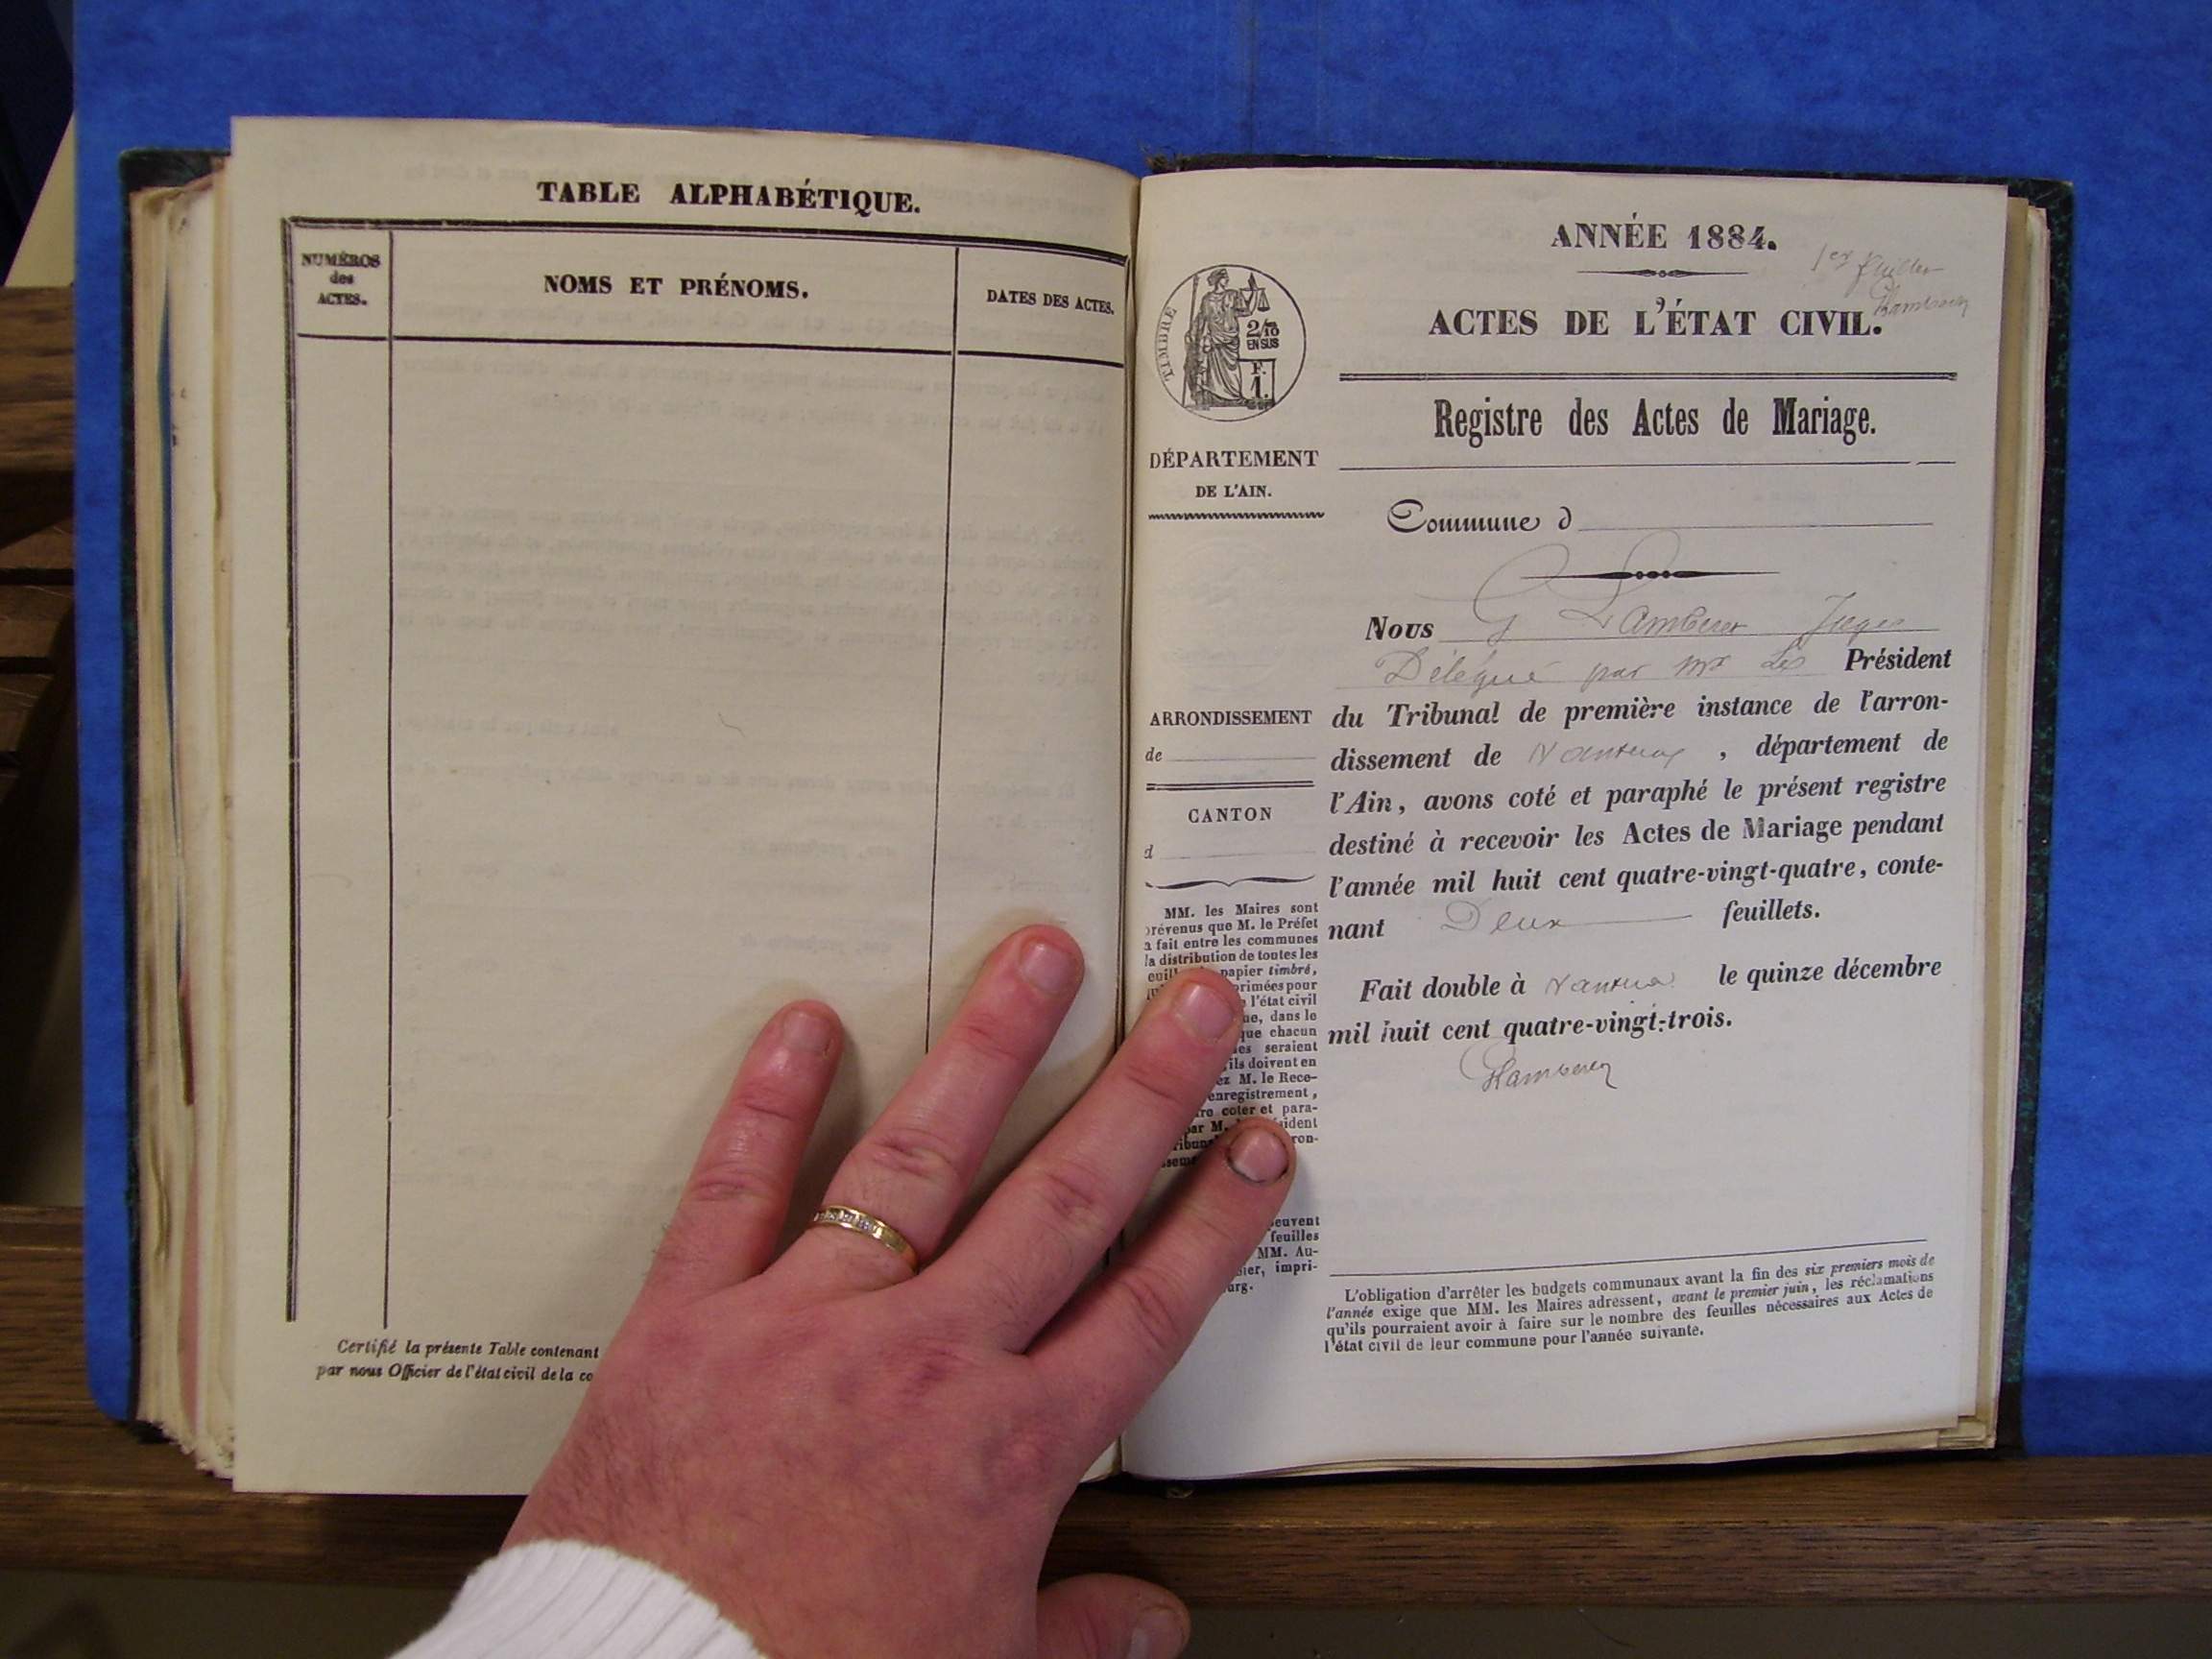 TABLE ALPHABÉTIQUE.
NUMÉROS
des
ACTES.
NOMS ET PRÉNOMS.
DATES DES ACTES.
Certifié la présente Table contenant
par nous Officier de l'état civil de la co
ANNÉE 1884.
1er feuillet
ACTES DE L'ÉTAT CIVIL.
TIMBRE
2/10
EN SUS
F.
1.
Registre des Actes de Mariage.
DÉPARTEMENT
DE L'AIN.
Commune d
Nous G Lamberet Juge
Délégué par Mr Le Président
du Tribunal de première instance de l'arron-
dissement de Nantua, département de
l'Ain, avons coté et paraphé le présent registre
destiné à recevoir les Actes de Mariage pendant
l'année mil huit cent quatre-vingt-quatre, conte-
nant Deux feuillets.
Fait double à Nantua le quinze décembre
mil huit cent quatre-vingt-trois.
ARRONDISSEMENT
de
CANTON
d
MM. les Maires sont
prévenus que M. le Préfet
a fait entre les communes
la distribution de toutes les
papier timbré,
primées pour
l'état civil
ue, dans le
que chacun
es seraient
ils doivent en
ez M. le Rece-
enregistrement,
re coter et para-
par M. ident
ribuna ron-
sseme
peuvent
feuilles
MM. Au-
ier, impri-
urg.
L'obligation d'arrêter les budgets communaux avant la fin des six premiers mois de
l'année exige que MM. les Maires adressent, avant le premier juin, les réclamations
qu'ils pourraient avoir à faire sur le nombre des feuilles nécessaires aux Actes de
l'état civil de leur commune pour l'année suivante.